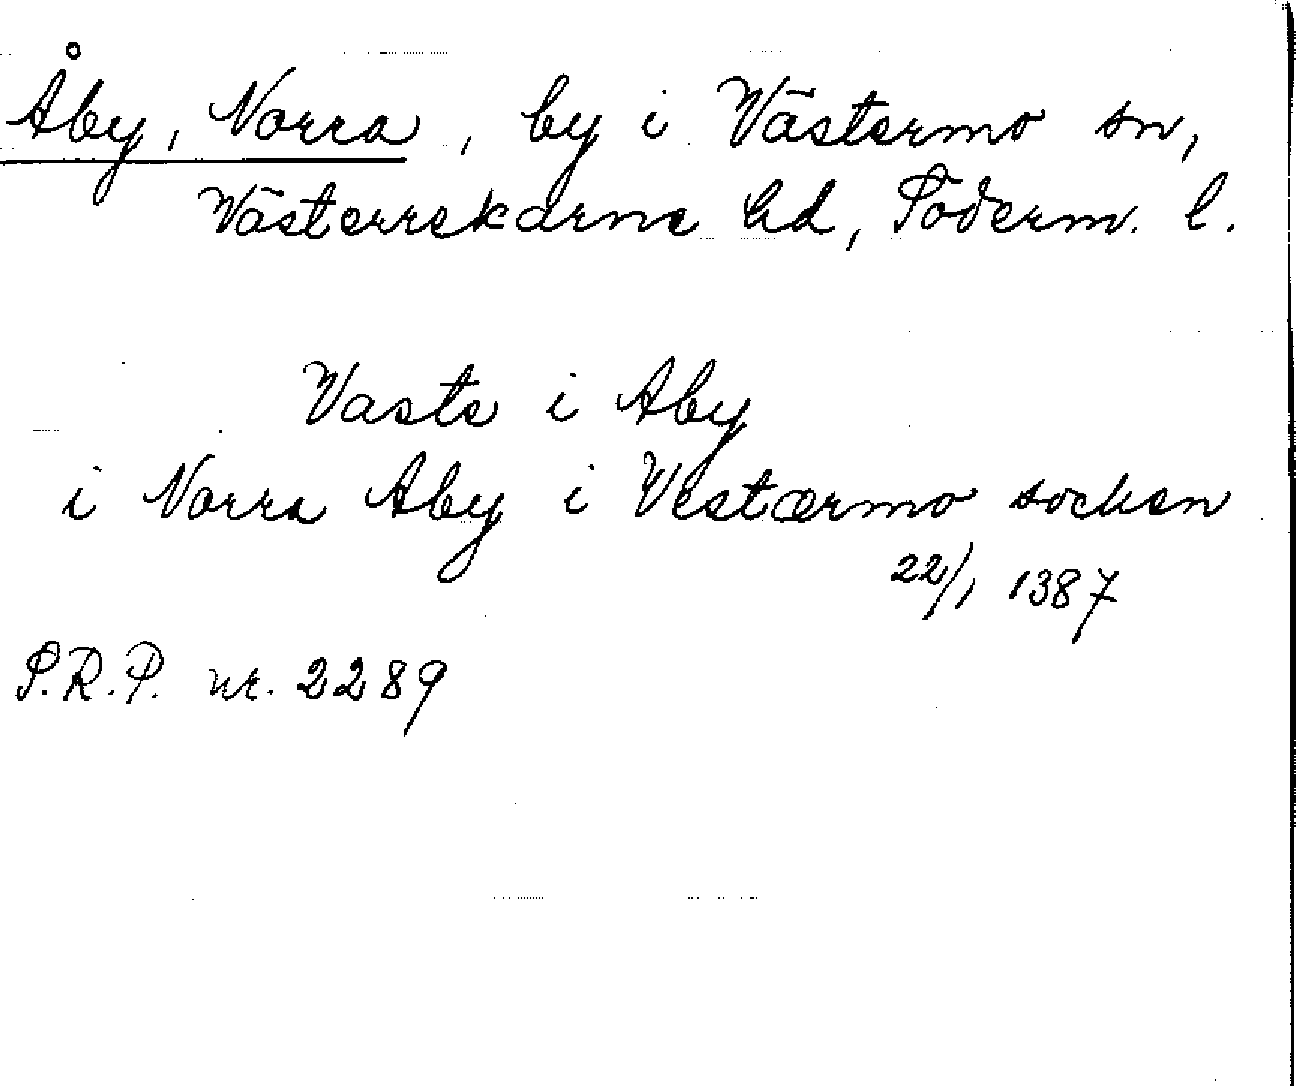 Åby, Norra, by i Västermo sn,
Västerrekarne hd, Söderm. l.
Vasta i Aby
i Norra Aby i Vestærmo socken
22/1 1387
S.R.P. nr. 2289